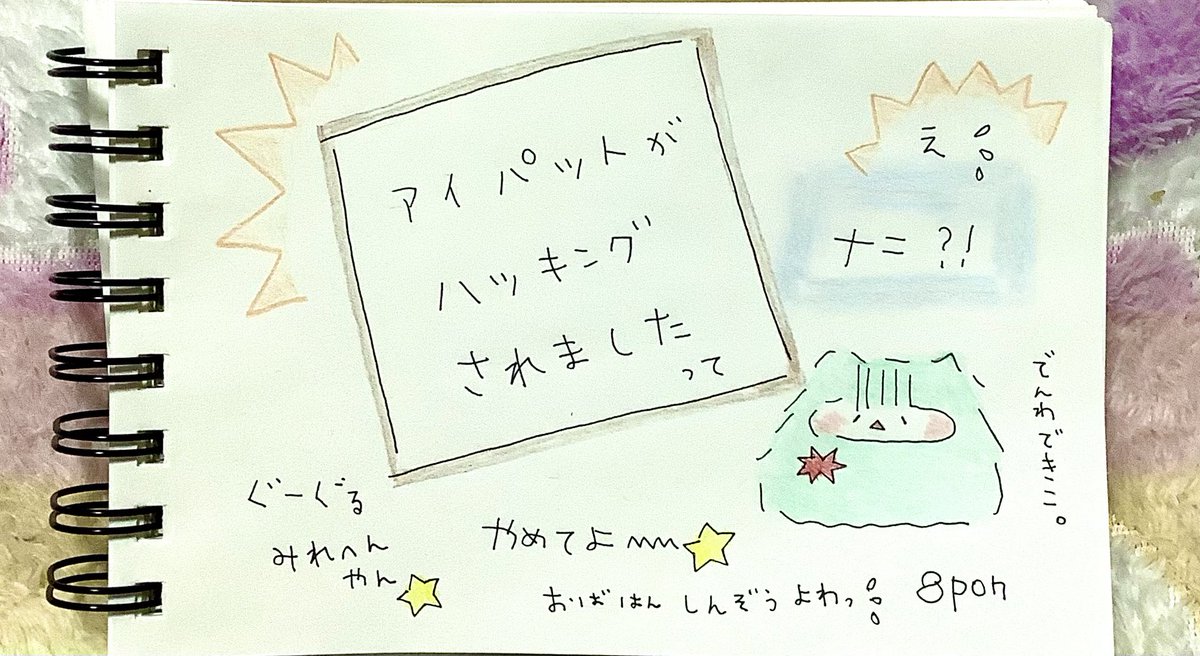 アイパットが
ハッキング
されました
って
え
ナニ?!
でんわできこ。
ぐーぐる
みれへん
やん
やめてよ〰
しんぞうよわっ
8pon